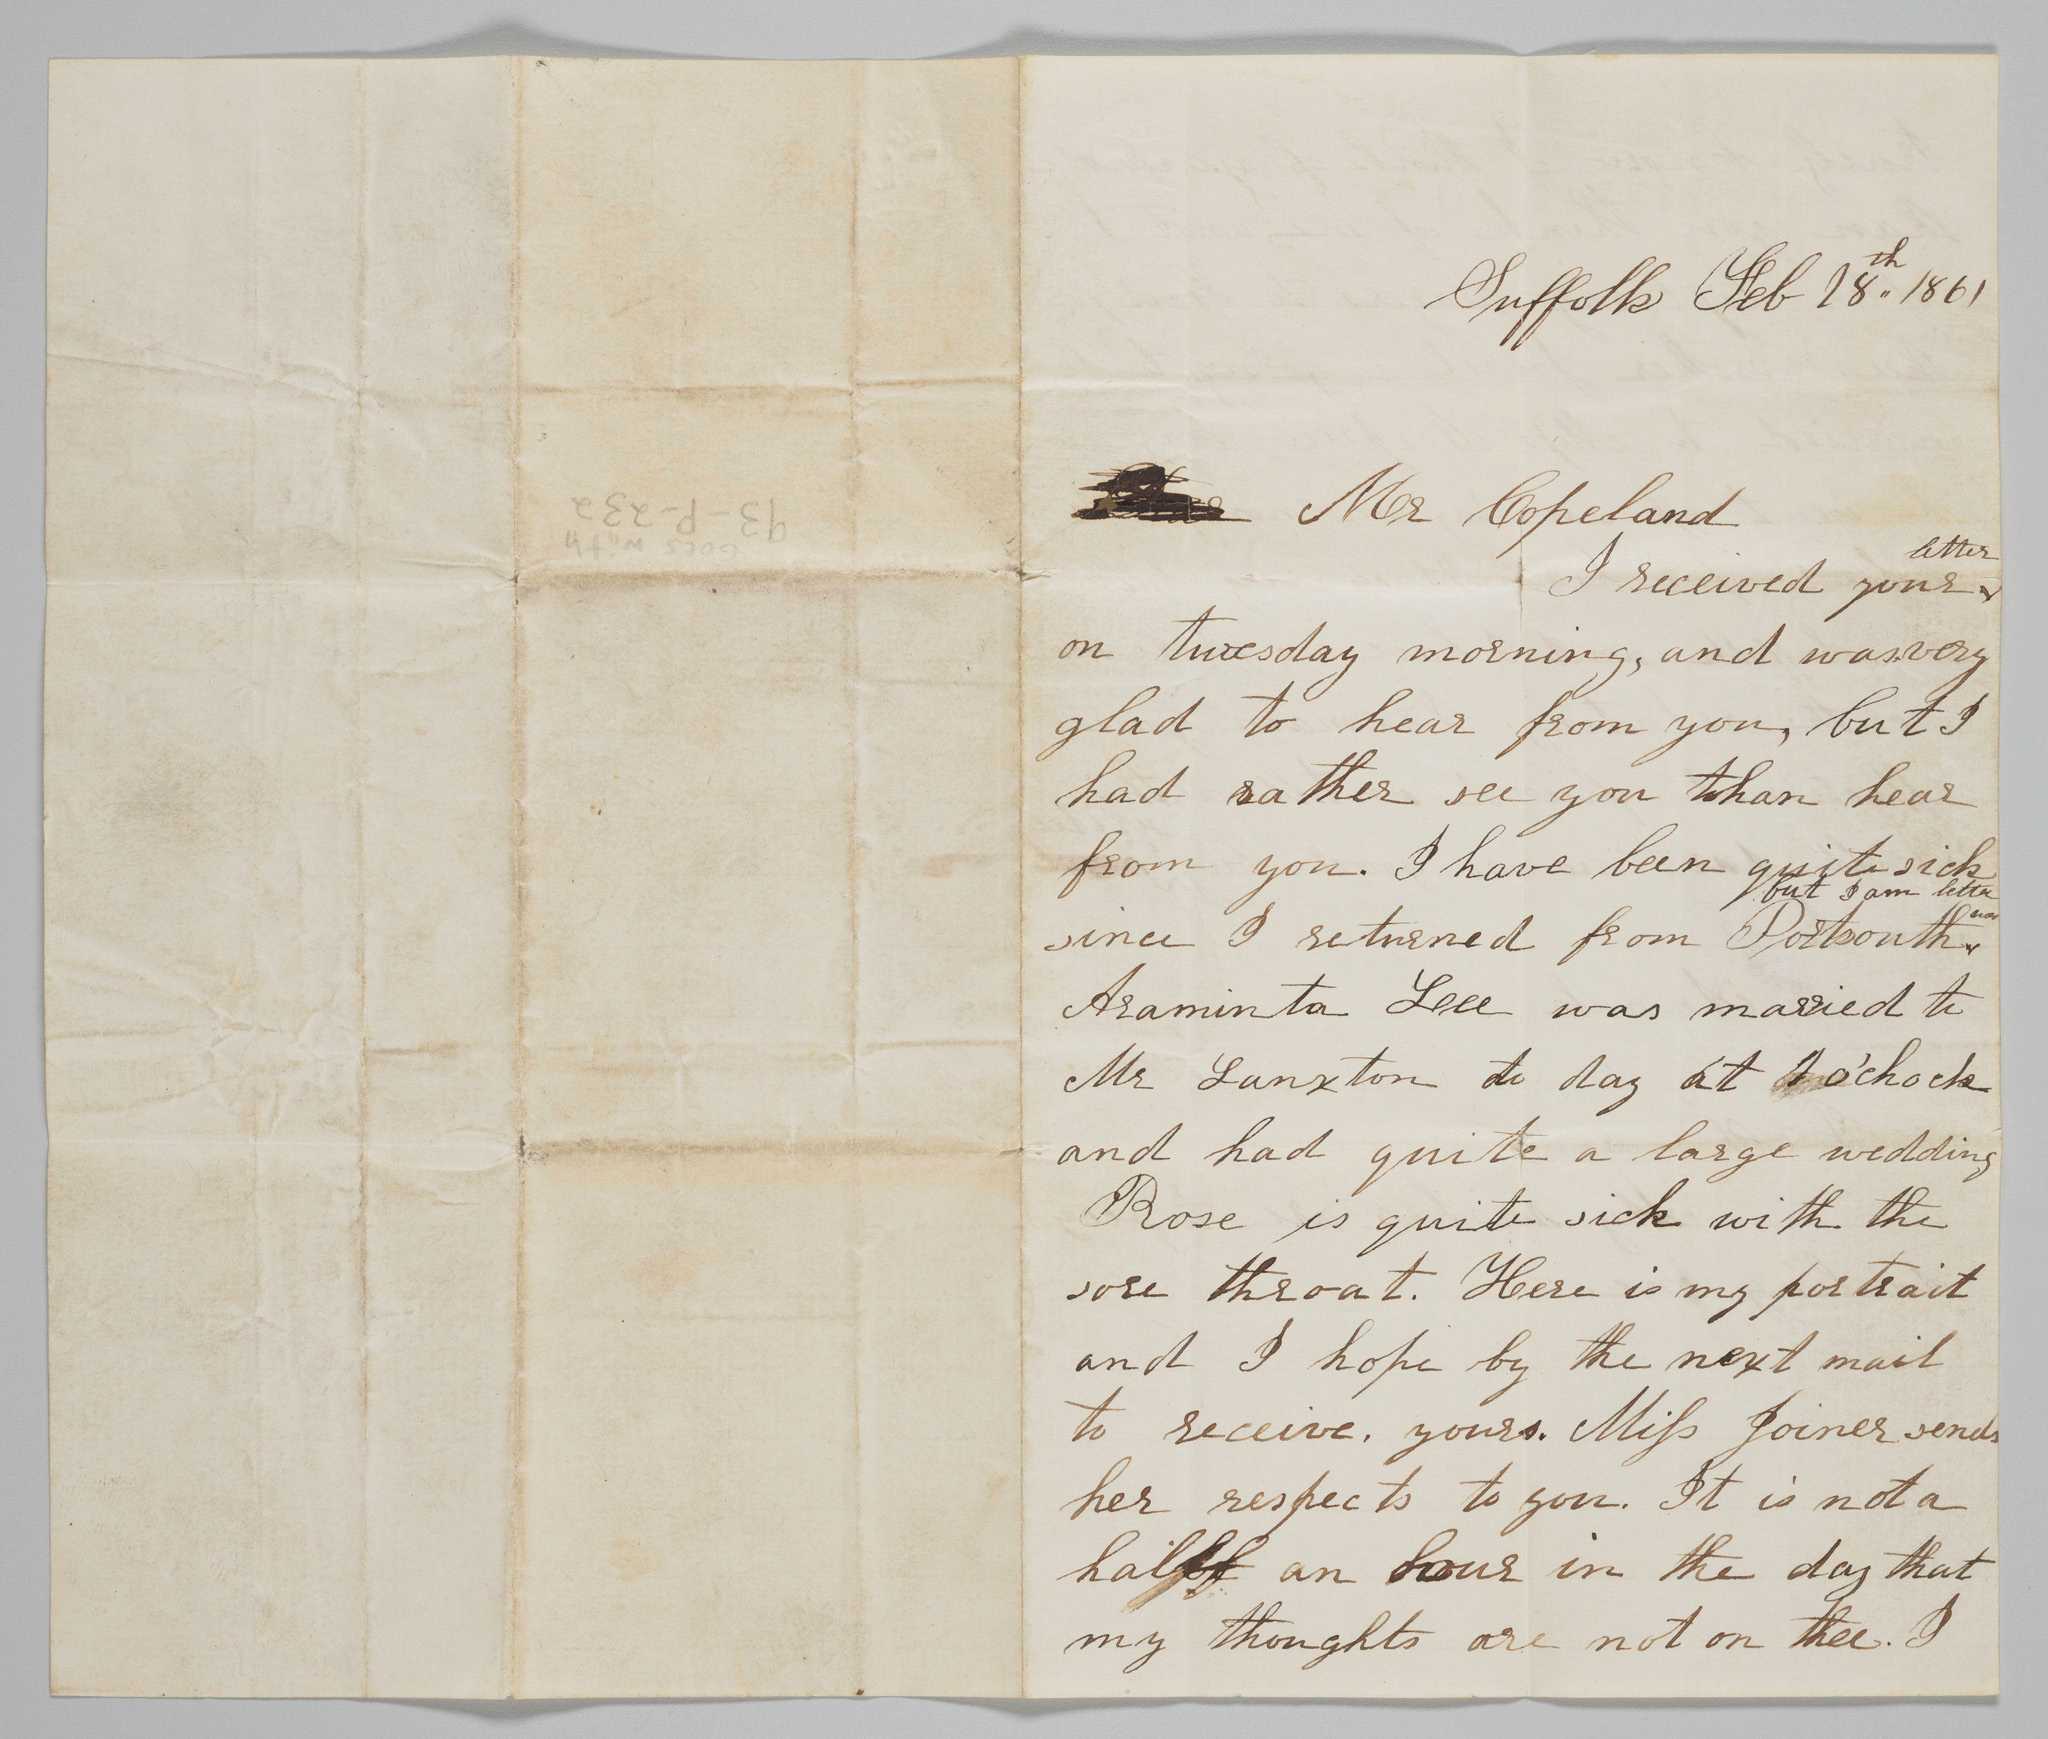 Goes with
93-P-232
Suffolk Feb 18th 1861
Mr Copeland
letter
I received your
on tuesday morning, and was very
glad to hear from you, but I
had rather see you than hear
from you. I have been quite sick
but I am better
now
since I returned from Portsouth
Araminta Lee was married to
Mr Lanxton to day at o'chock
and had quite a large wedding
Rose is quite sick with the
sore throat. Here is my portrait
and I hope by the next mail
to receive. yours. Miſs Joiner sends
her respects to you. It is not a
half an hour in the day that
my thoughts are not on thee. I